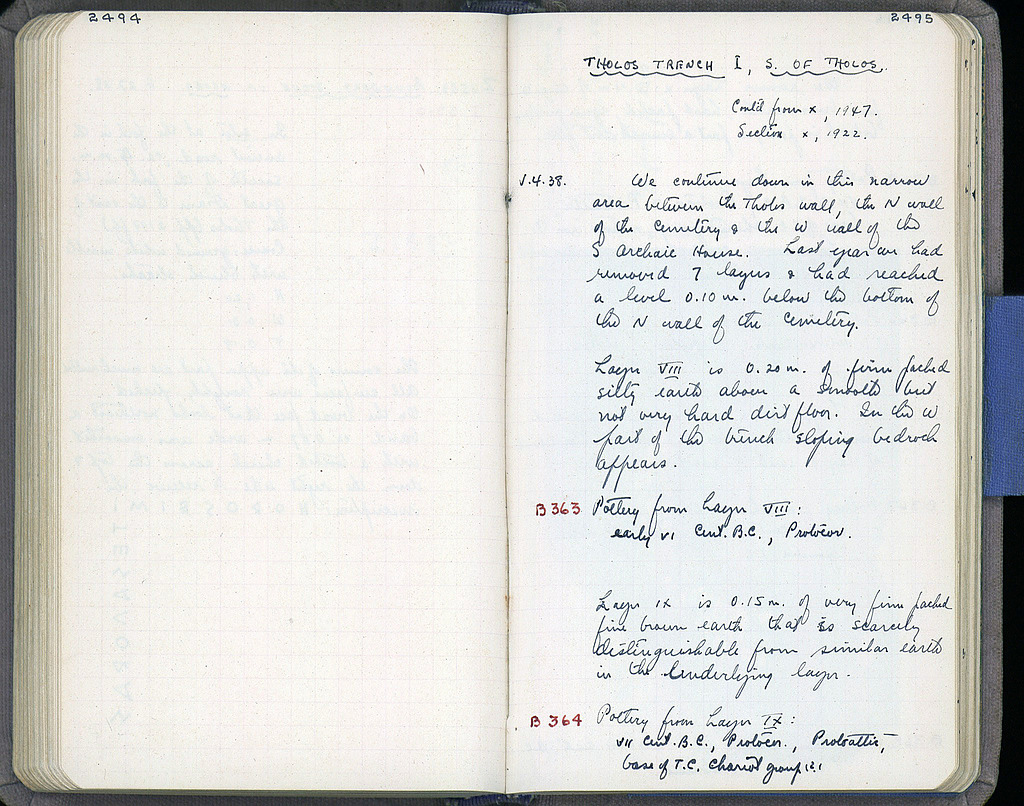 2494
2495
THOLOS TRENCH I, S. OF THOLOS.
Cont'd from x, 1947.
Section x, 1922.
V.4.38. We continue down in this narrow
area between the Tholos wall, the N wall
of the Cemetery & the W wall of the
S Archaic House. Last year we had
removed 7 layers & had reached
a level 0.10 m. below the bottom of
the N wall of the Cemetery.
Layer VIII is 0.20 m. of firm packed
silty earth above a smooth but
not very hard dirt floor. In the W
part of the trench sloping bedrock
appears.
B 363 Pottery from Layer VIII:
early VI Cent. B.C., Protocor.
Layer IX is 0.15 m. of very firm packed
fine brown earth that is scarcely
distinguishable from similar earth
in the underlying layer.
B 364 Pottery from Layer IX:
VII Cent. B.C., Protocor., Protoattic,
base of T.C. Chariot group